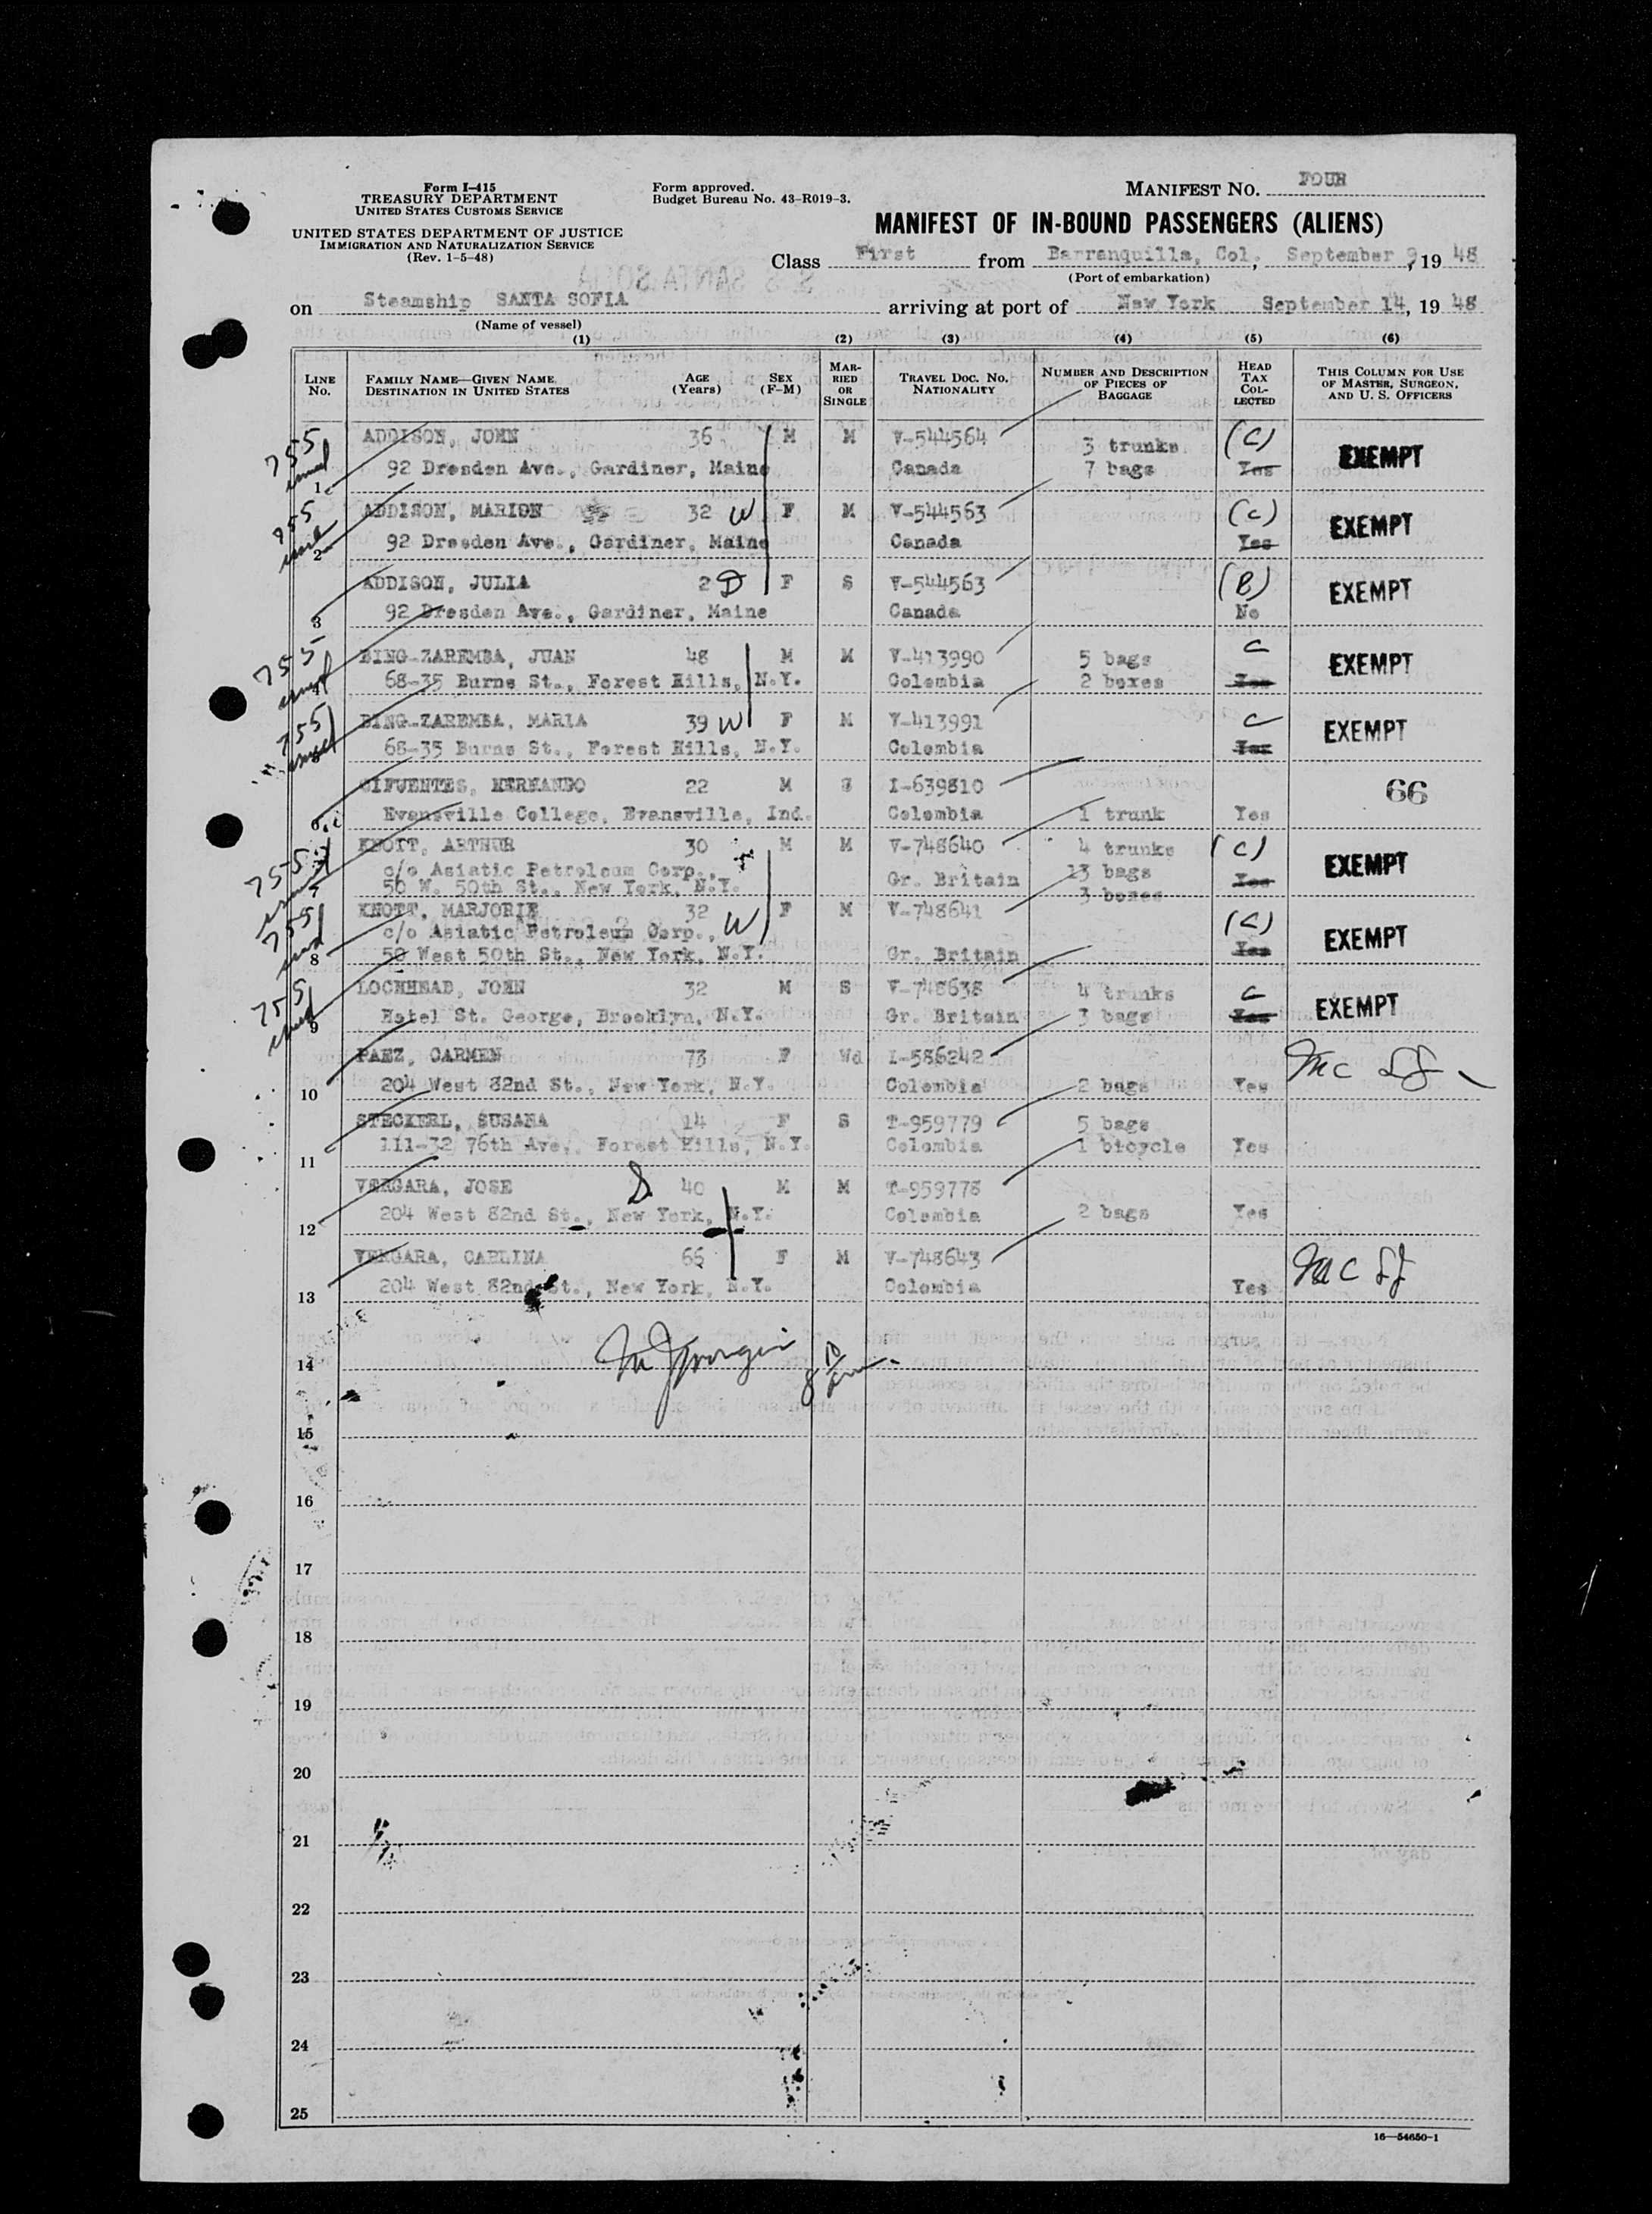 Form I-415
TREASURY DEPARTMENT
UNITED STATES CUSTOMS SERVICE
UNITED STATES DEPARTMENT OF JUSTICE
IMMIGRATION AND NATURALIZATION SERVICE
(Rev. 1-5-48)
Form approved.
Budget Bureau No. 43-R019-3.
MANIFEST No. FOUR
MANIFEST OF IN-BOUND PASSENGERS (ALIENS)
Class First from Barranquilla, Col., September 9, 19 48
(Port of embarkation)
on Steamship SANTA SOFIA arriving at port of New York September 14, 19 48
(Name of vessel)
(1) (2) (3) (4) (5) (6)
LINE No. FAMILY NAME—GIVEN NAME DESTINATION IN UNITED STATES AGE (Years) SEX (F-M) MARRIED OR SINGLE TRAVEL DOC. No. NATIONALITY NUMBER AND DESCRIPTION OF PIECES OF BAGGAGE HEAD TAX COLLECTED THIS COLUMN FOR USE OF MASTER, SURGEON, AND U. S. OFFICERS
755 ADDISON, JOHN 36 M M V-544564 3 trunks (C) EXEMPT
1 92 Dresden Ave., Gardiner, Maine Canada 7 bags Yes
755 ADDISON, MARION 32 W F M V-544563 (C) EXEMPT
2 92 Dresden Ave., Gardiner, Maine Canada Yes
ADDISON, JULIA 2 D F S V-544563 (B) EXEMPT
3 92 Dresden Ave., Gardiner, Maine Canada No
755 BING-ZAREMBA, JUAN 48 M M V-413990 5 bags C EXEMPT
68-35 Burns St., Forest Hills, N.Y. Colombia 2 boxes Yes
755 BING-ZAREMBA, MARIA 39 W F M V-413991 C EXEMPT
68-35 Burns St., Forest Hills, N.Y. Colombia Yes
CIFUENTES, HERNANDO 22 M S I-639810 66
6 Evansville College, Evansville, Ind. Colombia 1 trunk Yes
755 KNOTT, ARTHUR 30 M M V-748640 4 trunks (C) EXEMPT
c/o Asiatic Petroleum Corp., Gr. Britain 13 bags Yes
7 50 W. 50th St., New York, N.Y. 3 boxes
755 KNOTT, MARJORIE 32 W F M V-748641 (C) EXEMPT
c/o Asiatic Petroleum Corp.,
8 50 West 50th St., New York, N.Y. Gr. Britain Yes
755 LOCHHEAD, JOHN 32 M S V-748638 4 trunks C EXEMPT
9 Hotel St. George, Brooklyn, N.Y. Gr. Britain 3 bags Yes
PAEZ, CARMEN 73 F Wd I-586242
10 204 West 82nd St., New York, N.Y. Colombia 2 bags Yes
STECKERL, SUSANA 14 F S T-959779 5 bags
11 111-32 76th Ave., Forest Hills, N.Y. Colombia 1 bicycle Yes
VERGARA, JOSE S. 40 M M T-959778
12 204 West 82nd St., New York, N.Y. Colombia 2 bags Yes
VERGARA, CARLINA 66 F M V-748643
13 204 West 82nd St., New York, N.Y. Colombia Yes
14
15
16
17
18
19
20
21
22
23
24
25
16—54650-1